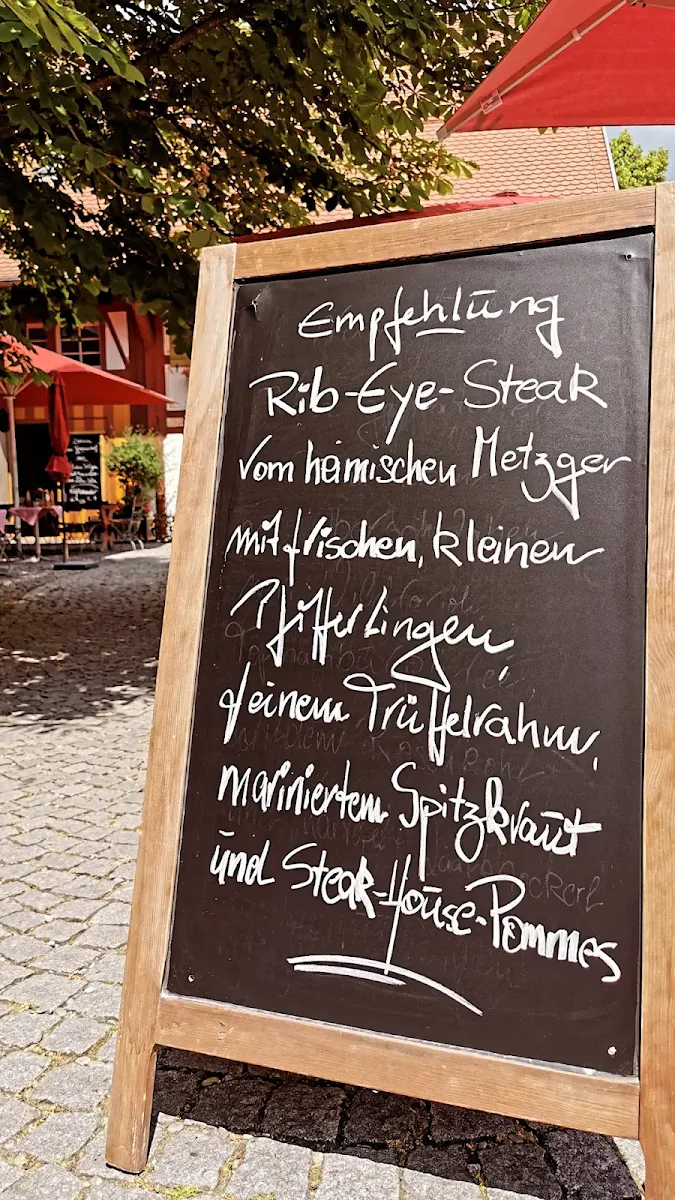 Empfehlung
Rib-Eye-Steak
vom heimischen Metzger
mit frischen, kleinen
Pfifferlingen,
feinem Trüffelrahm,
mariniertem Spitzkraut
und Steak-House-Pommes